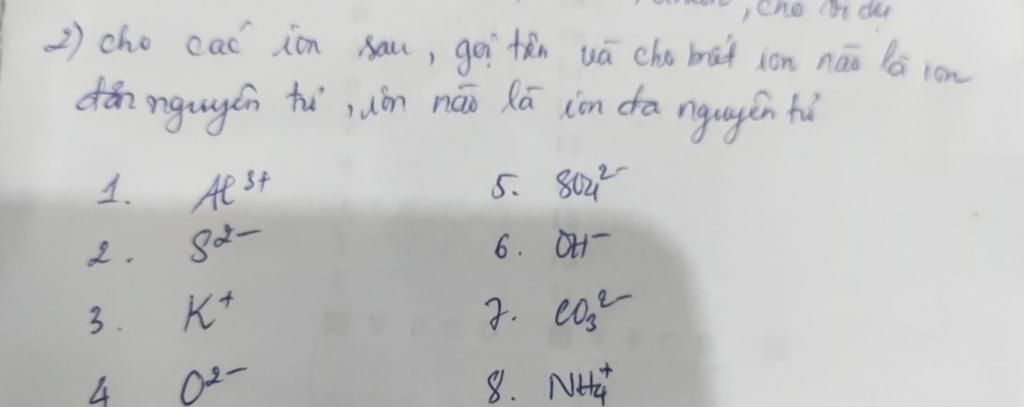 , cho ví dụ
2) cho các ion sau, gọi tên và cho biết ion nào là ion
đơn nguyên tử, ion nào là ion đa nguyên tử
1. Al³⁺
2. S²⁻
3. K⁺
4 O²⁻
5. SO₄²⁻
6. OH⁻
7. CO₃²⁻
8. NH₄⁺